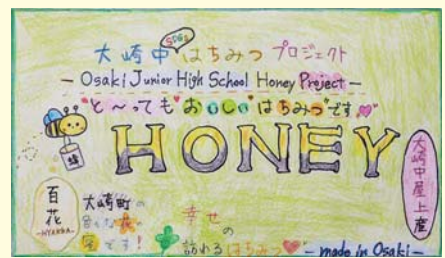 大崎中 SDGs はちみつ プロジェクト
— Osaki Junior High School Honey Project —
"と〜っても"おいしい"はちみつ"です
HONEY
蜂
百花
-HYAKKA-
大崎町の
です!
幸せ
の
訪れる はちみつ
大崎中屋上産
— made in Osaki —